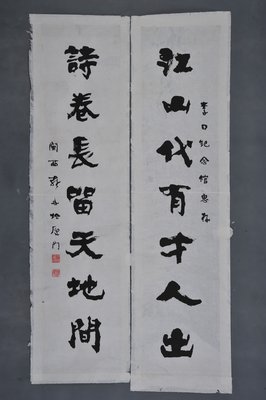 江山代有才人出
李白纪念馆惠存
詩卷長留天地間